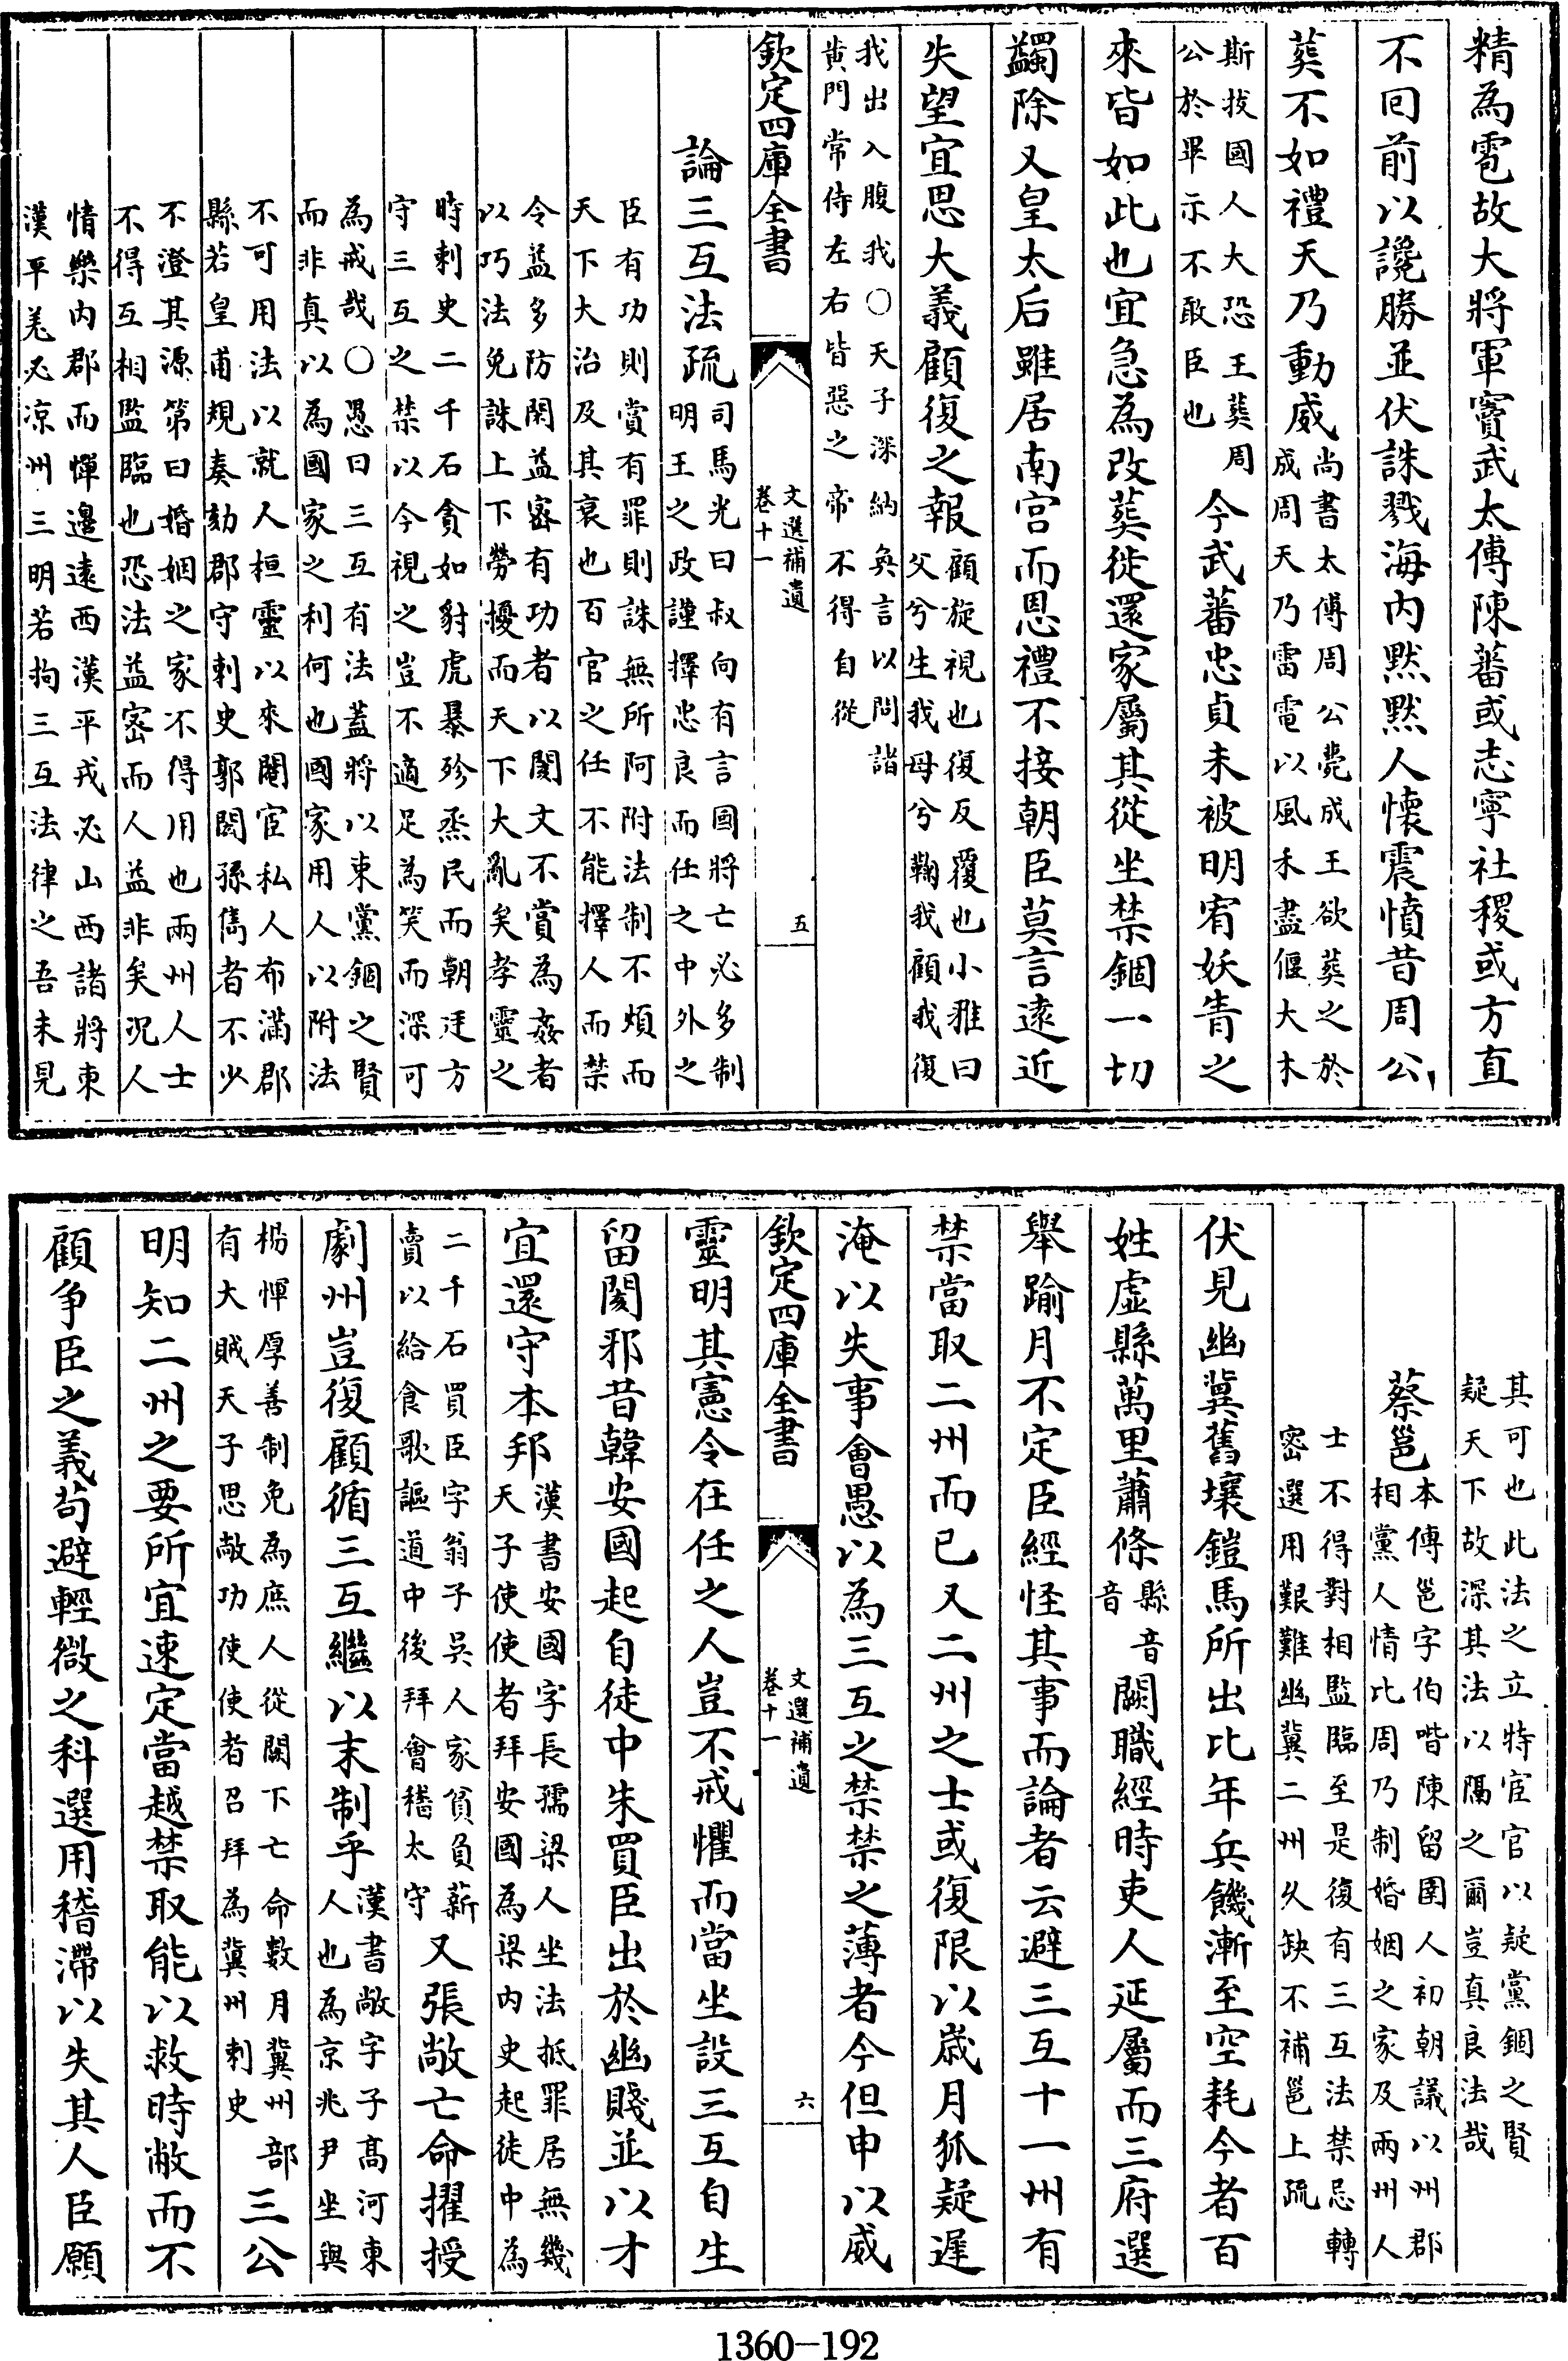 精為雹故大將軍竇武太傅陳蕃或志寧社稷或方直
不回前以讒勝並伏誅戮海内黙黙人懷震憤昔周公
葬不如禮天乃動威尚書太傅周公薨成王欲葬之於成周天乃雷電以風禾盡偃大木
斯拔國人大恐王葬周公於畢示不敢臣也今武蕃忠貞未被明宥妖眚之
來皆如此也宜急為改葬徙還家屬其從坐禁錮一切
蠲除又皇太后雖居南宫而恩禮不接朝臣莫言遠近
失望宜思大義顧復之報顧旋視也復反覆也小雅曰父兮生我母兮鞠我顧我復
我出入腹我〇天子深納奐言以問諸黄門常侍左右皆惡之帝不得自從
欽定四庫全書
文選補遺
卷十一
五
論三互法疏司馬光曰叔向有言國將亡必多制明王之政謹擇忠良而任之中外之
臣有功則賞有罪則誅無所阿附法制不煩而天下大治及其衰也百官之任不能擇人而禁
令益多防閑益宻有功者以閡文不賞為姦者以巧法免誅上下勞擾而天下大亂矣孝靈之
時刺史二千石貪如豺虎暴殄烝民而朝廷方守三互之禁以今視之豈不適足為笑而深可
為戒哉〇愚曰三互有法蓋將以東黨錮之賢而非真以為國家之利何也國家用人以附法
不可用法以就人桓靈以來閹宦私人布滿郡縣若皇甫規奏劾郡守刺史郭閎孫雋者不少
不澄其源第曰婚姻之家不得用也兩州人士不得互相監臨也恐法益宻而人益非矣况人
情樂内郡而憚邊遠西漢平戎必山西諸將東漢平羌必凉州三明若拘三互法律之吾未見
其可也此法之立特宦官以疑黨錮之賢疑天下故深其法以隔之爾豈真良法哉
蔡邕本傳邕字伯喈陳留圉人初朝議以州郡相黨人情比周乃制婚姻之家及兩州人
士不得對相監臨至是復有三互法禁忌轉宻選用艱難幽冀二州久缺不補邕上疏
伏見幽冀舊壤鎧馬所出比年兵饑漸至空耗今者百
姓虛縣萬里蕭條縣音音闕職經時吏人延屬而三府選
舉踰月不定臣經怪其事而論者云避三互十一州有
禁當取二州而已又二州之士或復限以歲月狐疑遲
淹以失事會愚以為三互之禁禁之薄者今但申以威
欽定四庫全書
文選補遺
卷十一
六
靈明其憲令在任之人豈不戒懼而當坐設三互自生
留閡邪昔韓安國起自徒中朱買臣出於幽賤並以才
宜還守本邦漢書安國字長孺梁人坐法抵罪居無幾天子使使者拜安國為梁内史起徒中為
二千石買臣字翁子吳人家貧負薪賣以給食歌謳道中後拜會稽太守又張敞亡命擢授
劇州豈復顧循三互繼以末制乎漢書敞字子高河東人也為京兆尹坐與
楊惲厚善制免為庶人從闕下亡命數月冀州部有大賊天子思敞功使使者召拜為冀州刺史三公
明知二州之要所宜速定當越禁取能以救時敝而不
顧争臣之義苟避輕微之科選用稽滯以失其人臣願
1360-192